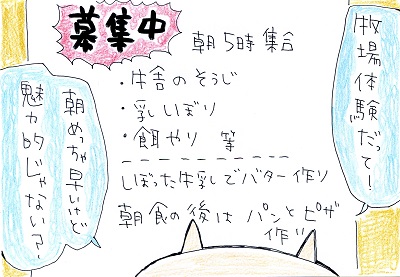 牧場体験だって!
募集中
朝5時集合
・牛舎のそうじ
・乳しぼり
・餌やり 等
しぼった牛乳でバター作り
朝食の後は パンとピザ
作り
朝めっちゃ早いけど
魅力的じゃない?